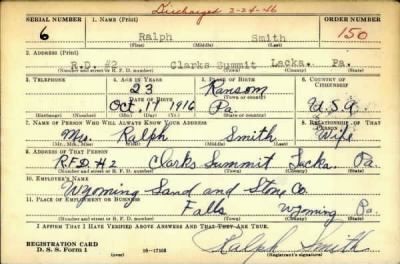 Discharged 2-24-46
SERIAL NUMBER 1. NAME (Print) ORDER NUMBER
6 Ralph Smith 150
(First) (Middle) (Last)
2. ADDRESS (Print)
R.D. #2 Clarks Summit Lacka. Pa.
(Number and street or R. F. D. number) (Town) (County) (State)
3. TELEPHONE 4. AGE IN YEARS 5. PLACE OF BIRTH 6. COUNTRY OF CITIZENSHIP
23 Ransom
DATE OF BIRTH (Town or county)
Oct. 17 1916 Pa. U.S.A.
(Mo.) (Day) (Yr.) (State or country)
7. NAME OF PERSON WHO WILL ALWAYS KNOW YOUR ADDRESS 8. RELATIONSHIP OF THAT PERSON
Mrs. Ralph Smith Wife
(Mr., Mrs., Miss) (First) (Middle) (Last)
9. ADDRESS OF THAT PERSON
R.F.D. #2 Clarks Summit Lacka Pa.
(Number and street or R. F. D. number) (Town) (County) (State)
10. EMPLOYER'S NAME
Wyoming Sand and Stone Co.
11. PLACE OF EMPLOYMENT OR BUSINESS
Falls Wyoming Pa.
(Number and street or R. F. D. number) (Town) (County) (State)
I AFFIRM THAT I HAVE VERIFIED ABOVE ANSWERS AND THAT THEY ARE TRUE.
REGISTRATION CARD
D. S. S. Form 1 16—17105 Ralph Smith
(Registrant's signature)